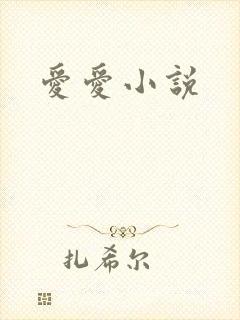 愛愛小説
扎希尔